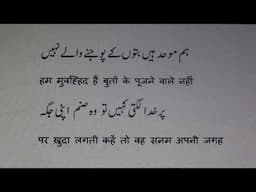 ہم موحد ہیں بتوں کے پوجنے والے نہیں
हम मुवह्हिद हैं बुतों के पूजने वाले नहीं
پر خدا لگتی کہیں تو وہ صنم اپنی جگہ
पर ख़ुदा लगती कहें तो वह सनम अपनी जगह